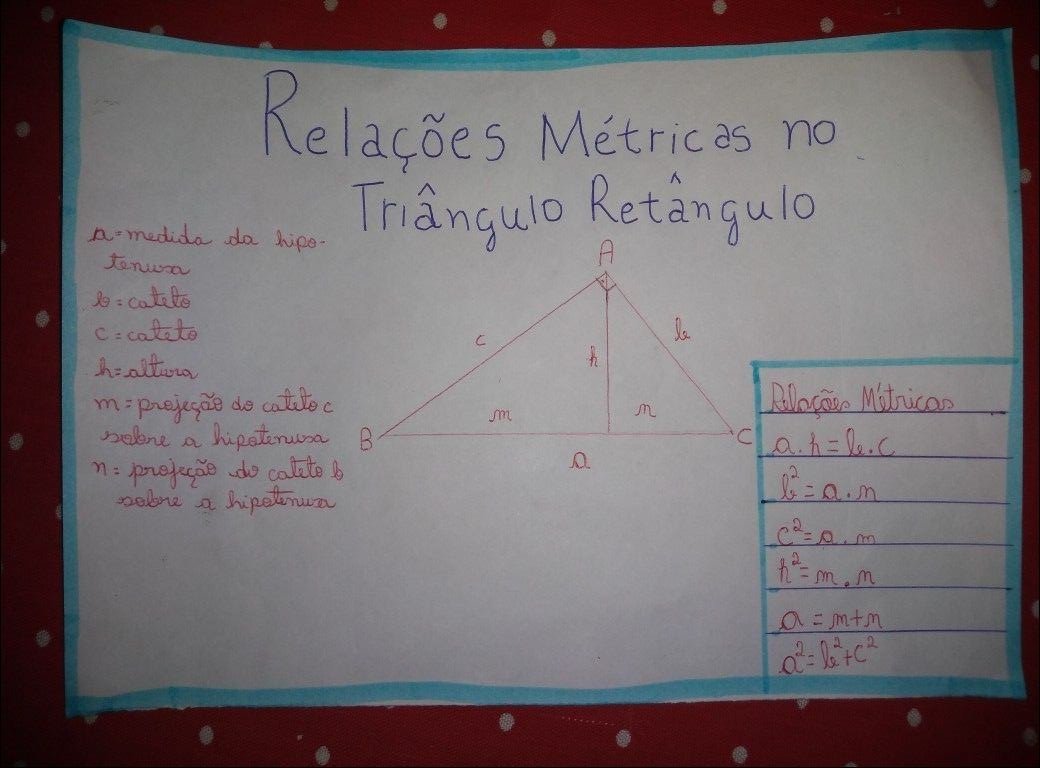 Relações Métricas no
Triângulo Retângulo
a = medida da hipo-
tenusa
b = cateto
c = cateto
h = altura
m = projeção do cateto c
sobre a hipotenusa
n = projeção do cateto b
sobre a hipotenusa
A
c
b
h
m
n
B
C
a
Relações Métricas
a . h = b . c
b² = a . n
c² = a . m
h² = m . n
a = m + n
a² = b² + c²